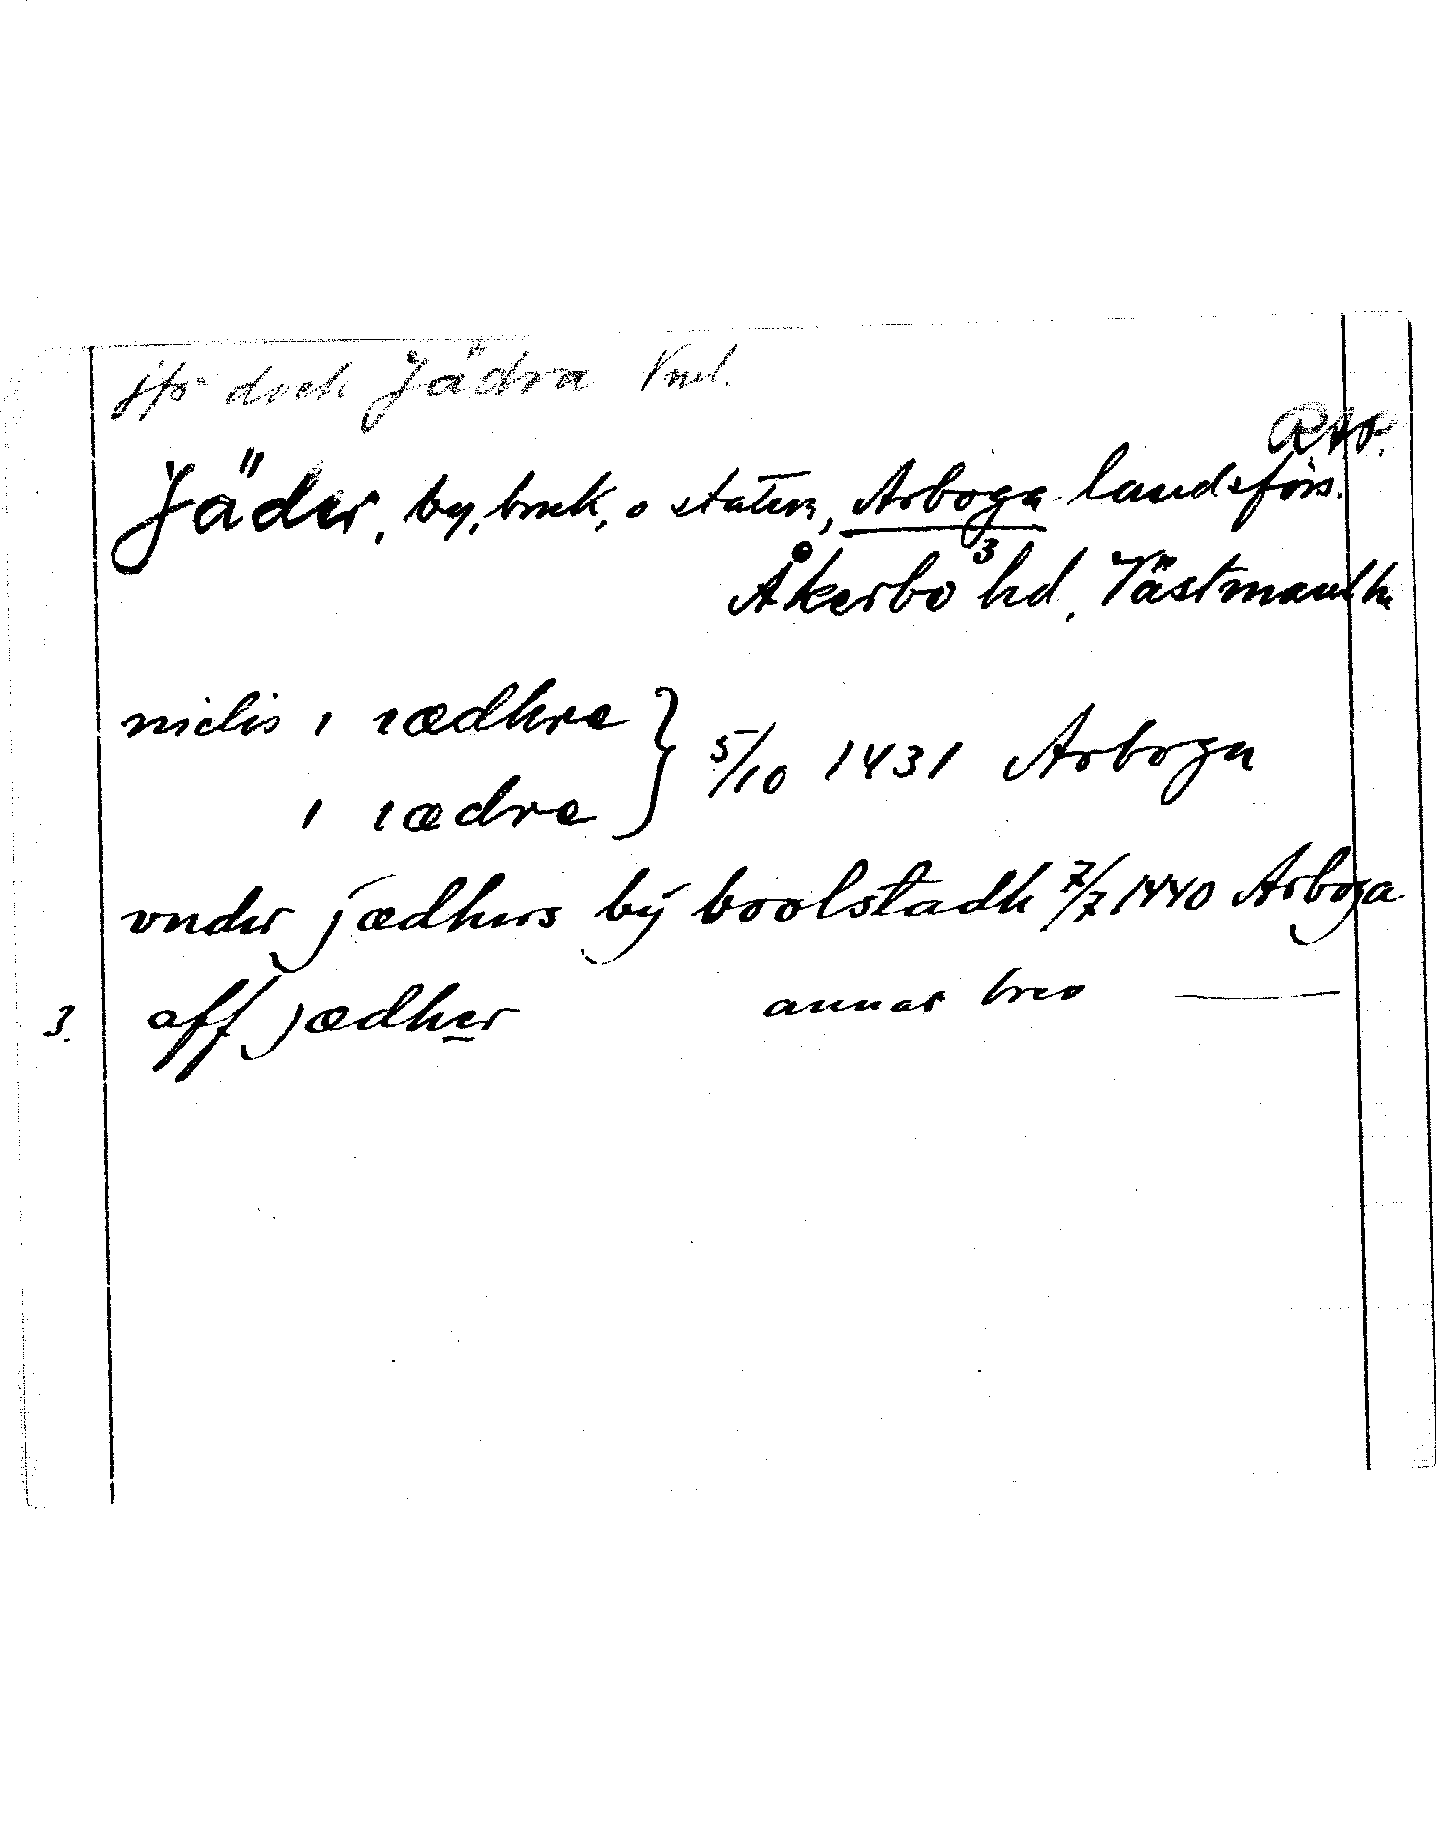 jfr dock Jädra Vml.
RAO.
Jäder, by, bruk, o station, Arboga landsförs.
3
Åkerbo hd, Västmanl. l.
nielis ı ıædhre } 5/10 1431 Arboga
ı ıædre
vnder jædhers bÿ boolstadh 7/7 1440 Arboga
3. aff jædher annat brev —